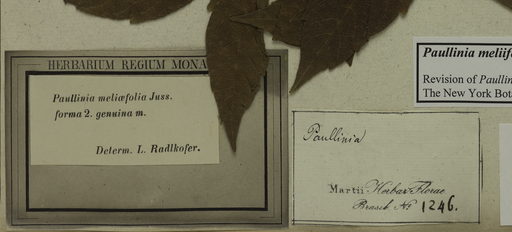 HERBARIUM REGIUM MONA
Paullinia meliæfolia Juss.
forma 2. genuina m.
Determ. L. Radlkofer.
Paullinia
Martii Herbar. Florae
Brasil. No 1246.
Paullinia meliif
Revision of Paullin
The New York Bot